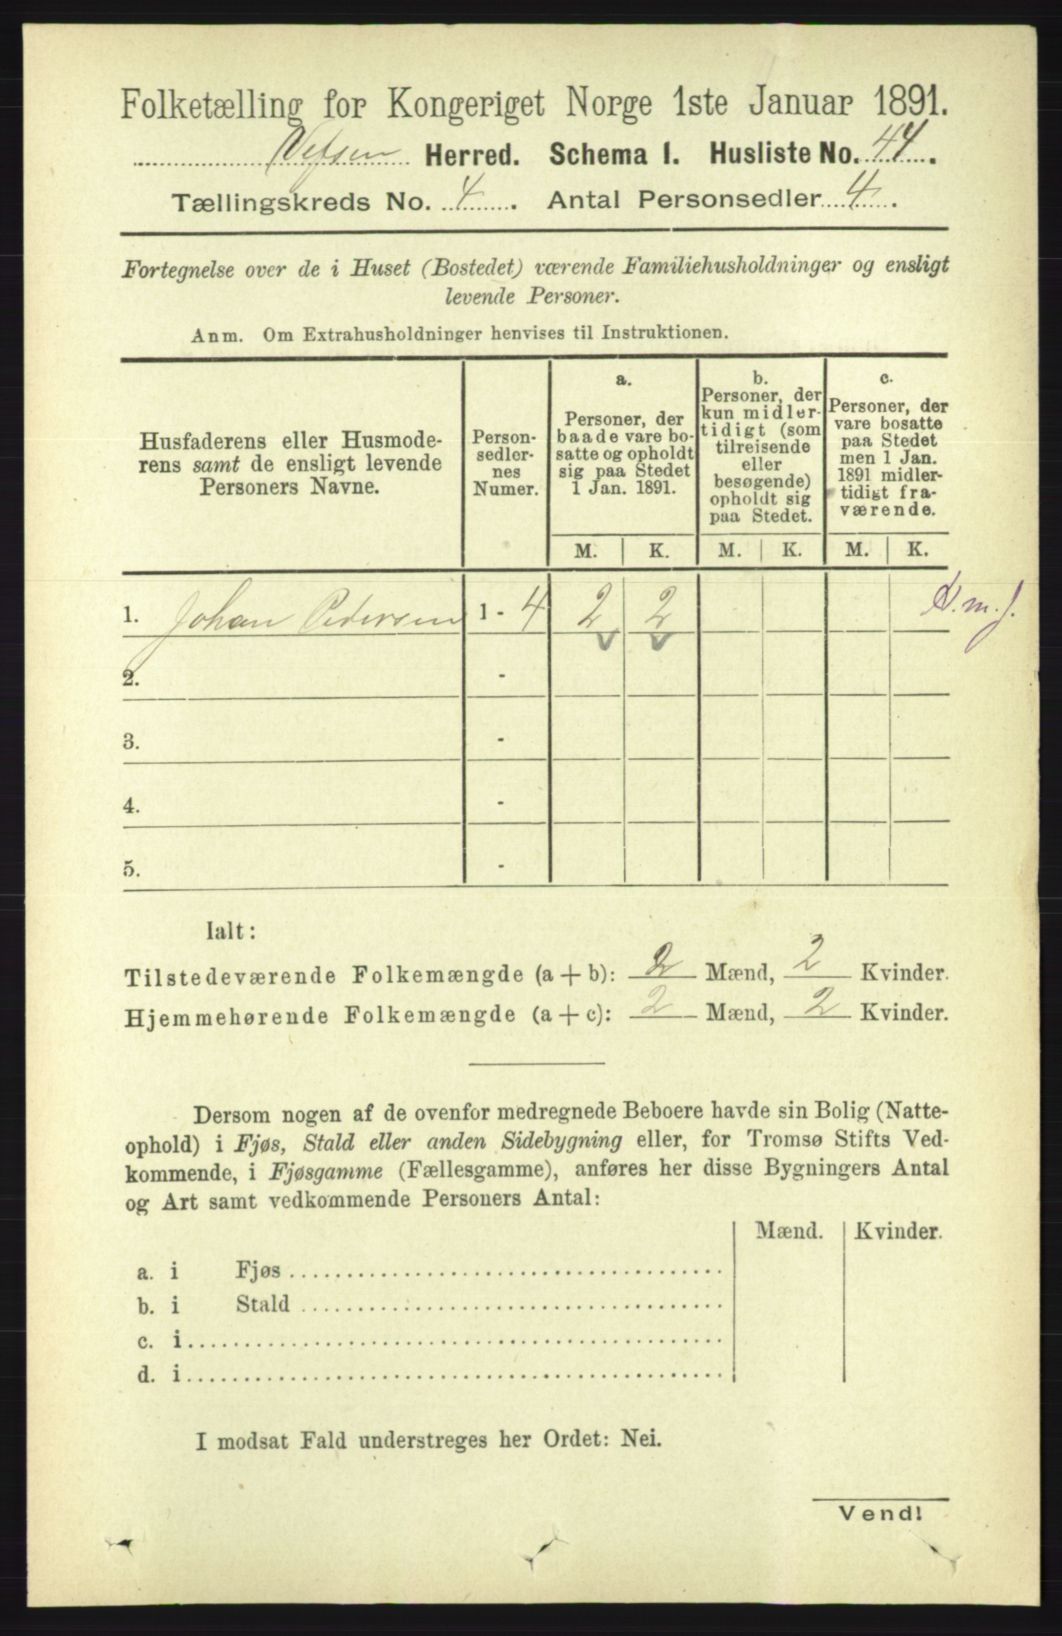 Folketælling for Kongeriget Norge 1ste Januar 1891.
Vefsen Herred. Schema I. Husliste No. 44.
Tællingskreds No. 4. Antal Personsedler 4.
Fortegnelse over de i Huset (Bostedet) værende Familiehusholdninger og ensligt
levende Personer.
Anm. Om Extrahusholdninger henvises til Instruktionen.
Husfaderens eller Husmode-
rens samt de ensligt levende
Personers Navne.
Person-
sedler-
nes
Numer.
a.
Personer, der
baade vare bo-
satte og opholdt
sig paa Stedet
1 Jan. 1891.
b.
Personer, der
kun midler-
tidigt (som
tilreisende
eller
besøgende)
opholdt sig
paa Stedet.
c.
Personer, der
vare bosatte
paa Stedet
men 1 Jan.
1891 midler-
tidigt fra-
værende.
M. K. M. K. M. K.
1. Johan Pedersen 1 - 4 2 2
2. -
3. -
4. -
5. -
Ialt:
Tilstedeværende Folkemængde (a + b): 2 Mænd, 2 Kvinder.
Hjemmehørende Folkemængde (a + c): 2 Mænd, 2 Kvinder.
Dersom nogen af de ovenfor medregnede Beboere havde sin Bolig (Natte-
ophold) i Fjøs, Stald eller anden Sidebygning eller, for Tromsø Stifts Ved-
kommende, i Fjøsgamme (Fællesgamme), anføres her disse Bygningers Antal
og Art samt vedkommende Personers Antal:
Mænd. Kvinder.
a. i Fjøs
b. i Stald
c. i
d. i
I modsat Fald understreges her Ordet: Nei.
Vend!